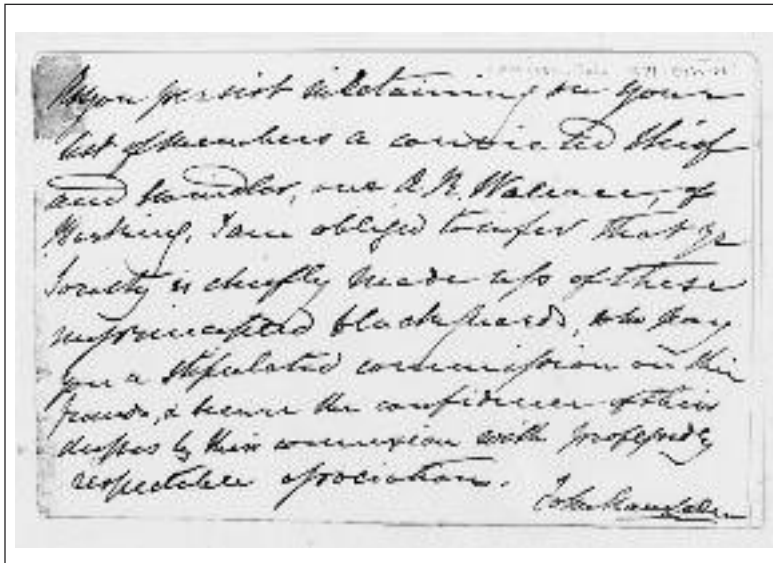 As you persist in retaining on your
list of members a convicted thief
and swindler, one A. R. Wallace, of
Dorking, I am obliged to infer that yr
Society is chiefly made up of these
unprincipled blackguards, who pay
you a stipulated commission on their
frauds, & secure the confidence of their
dupes by their connexion with professedly
respectable associations.
John Hampden